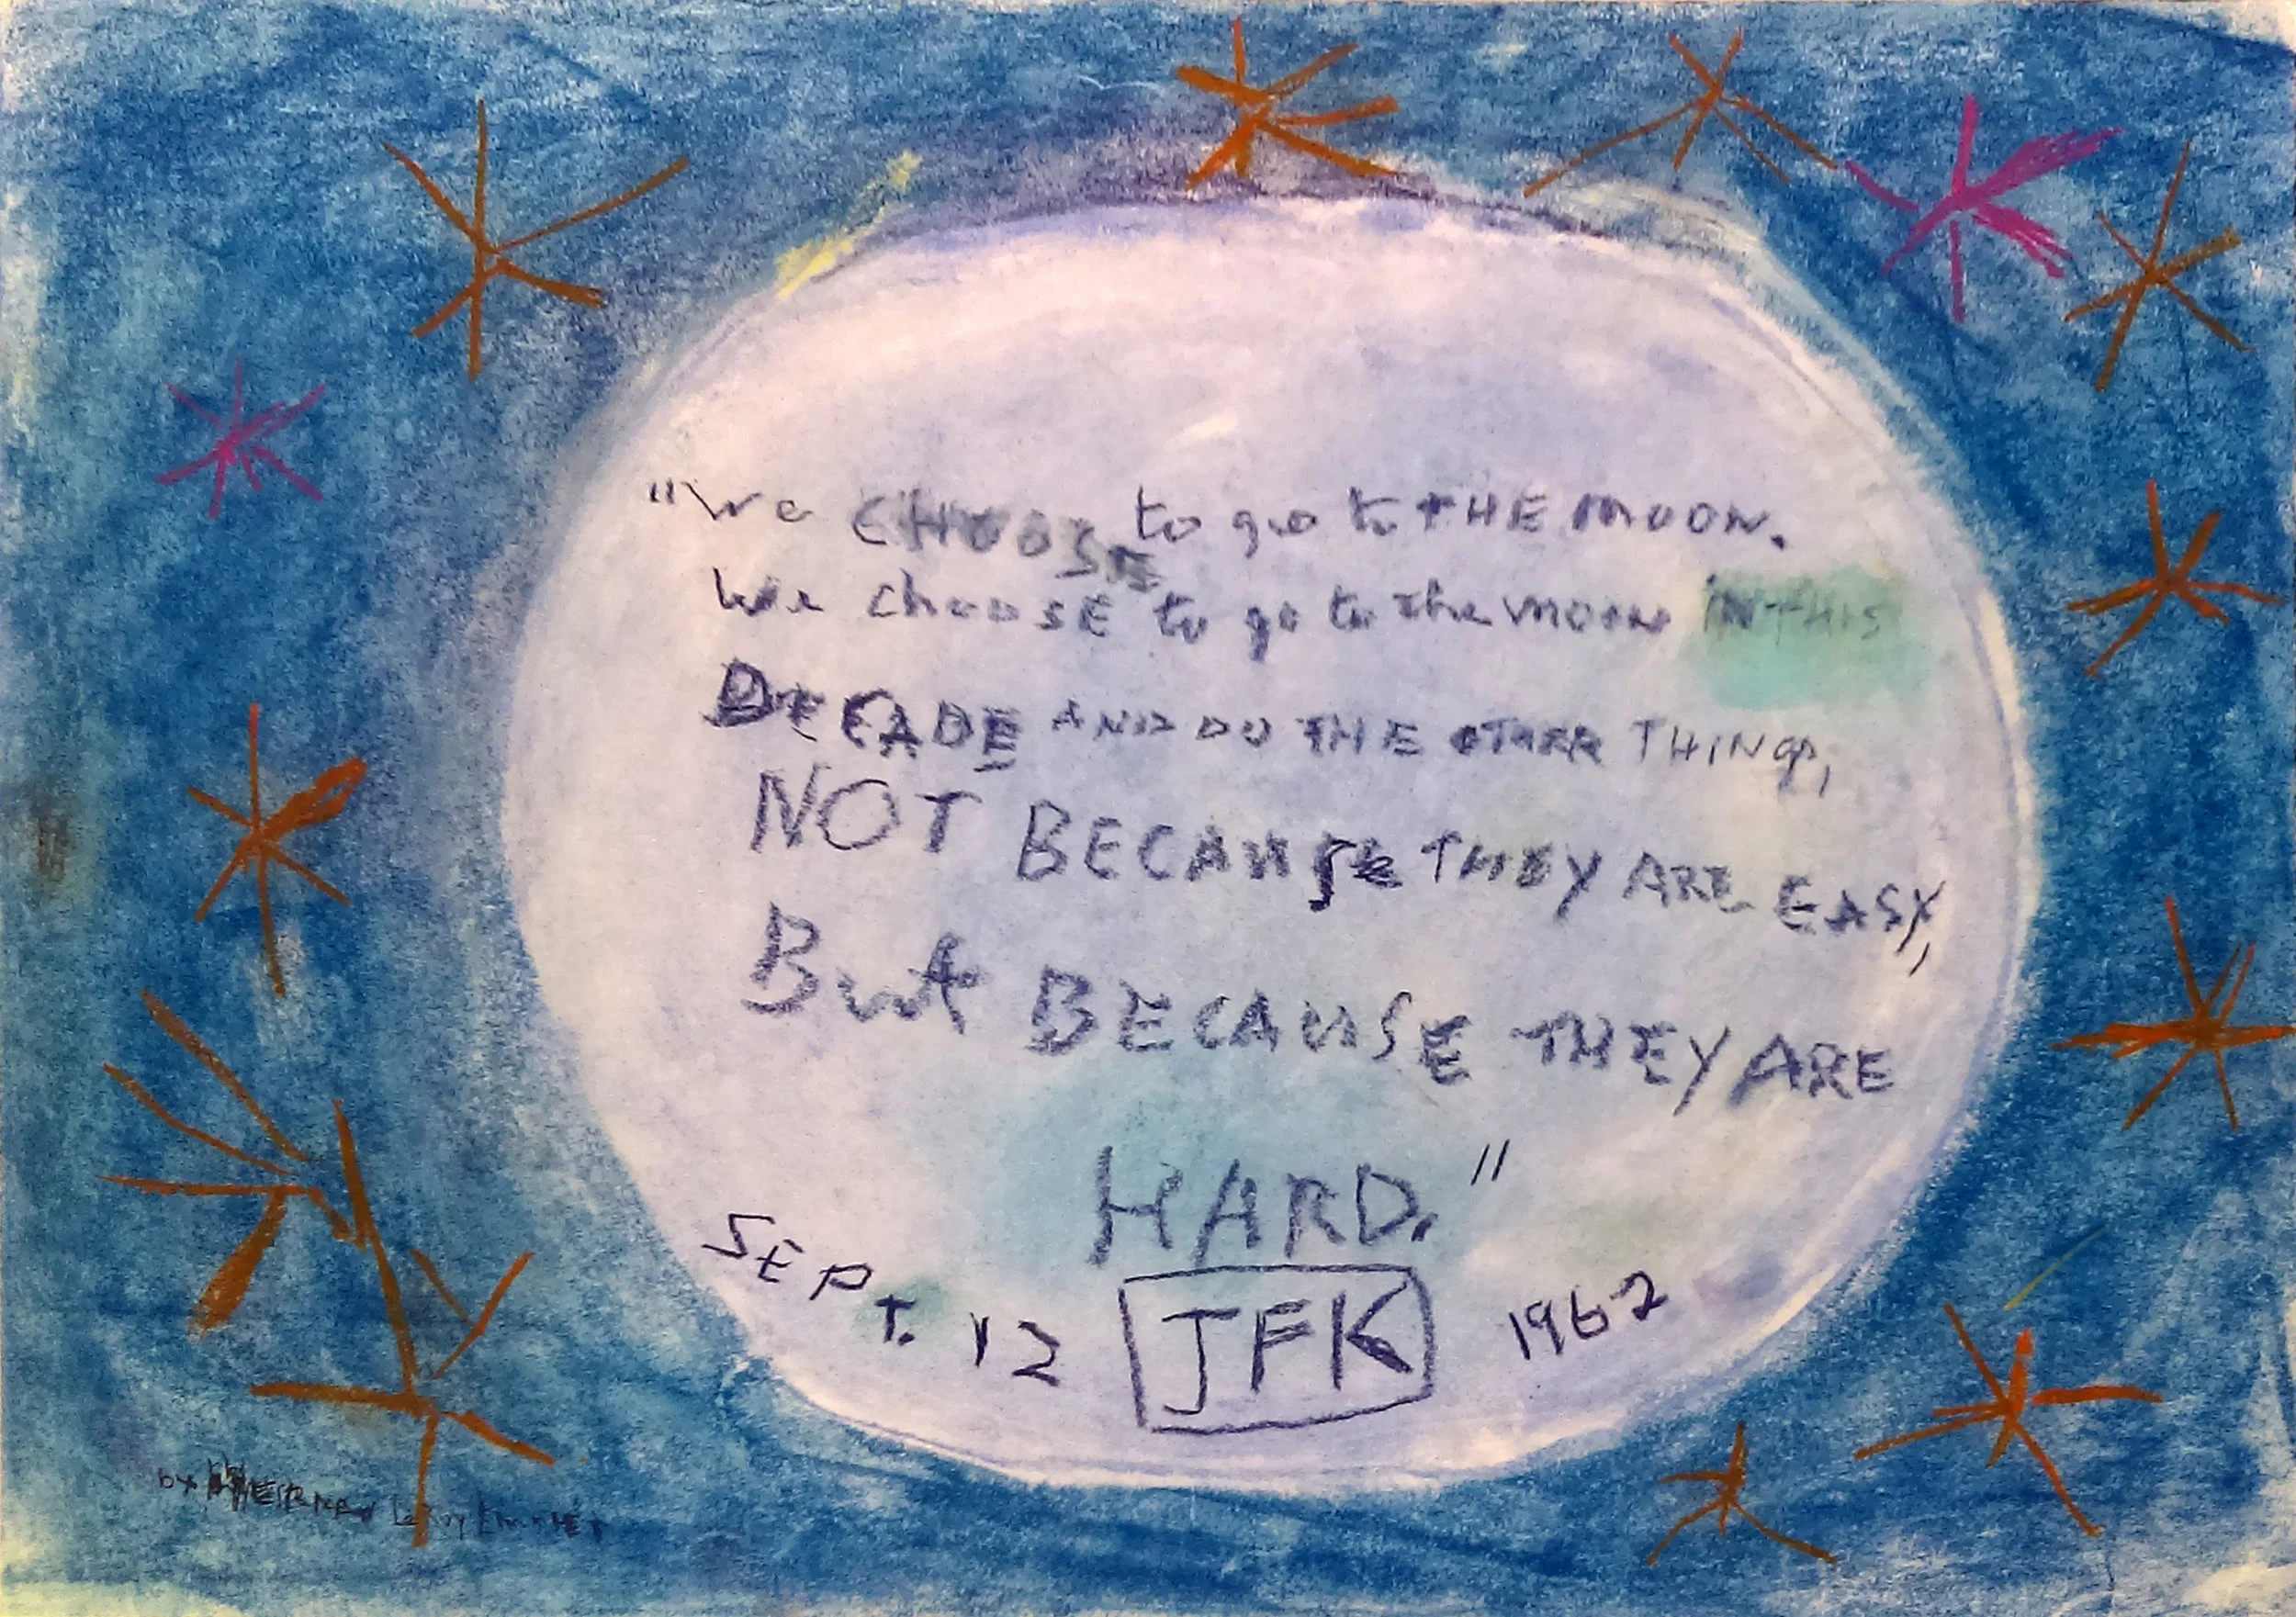 "We CHOOSE to go to tHE MOON.
We chooSE to go to the moon IN THIS
DECADE AND DO THE OTHER THINGS,
NOT BECAUSE THEY ARE EASY,
But BECAUSE THEY ARE
HARD."
SEPT. 12 JFK 1962
by LeRoy